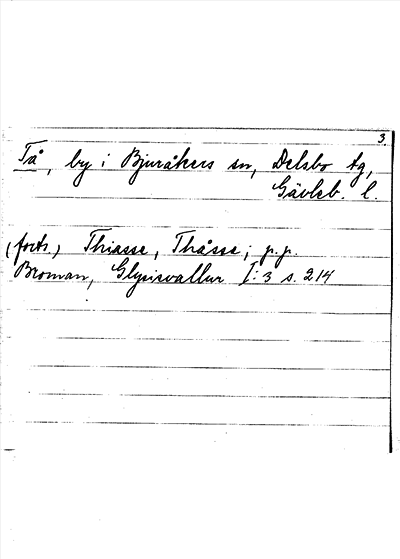 3.
Tå, by i Bjuråkers sn, Delsbo tg,
Gävleb. l.
(forts.) Thiasse, Thåsse; p.p.
Broman, Glysisvallur I:3 s. 214